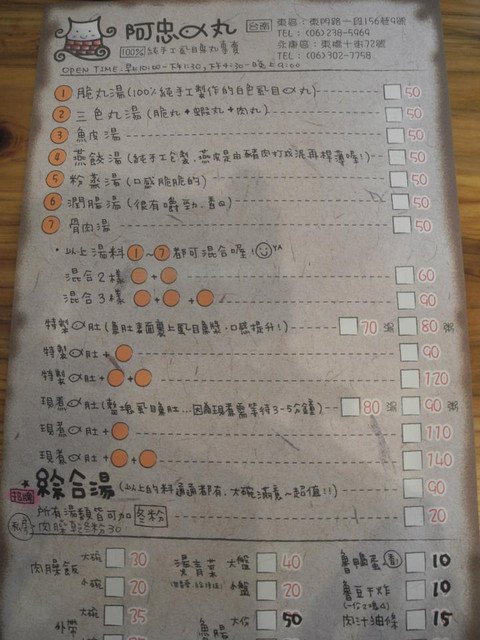 阿忠α丸
100% 純手工虱目魚丸專賣
台南
東區：東門路一段156巷9號
TEL：(06)238-5969
永康區：東橋十街72號
TEL：(06)302-7758
OPEN TIME:早10:00-下午1:30,下午4:30-晚上9:00
1 脆丸湯(100%純手工製作的白色虱目α丸) 50
2 三色丸湯(脆丸+蝦丸+肉丸) 50
3 魚皮湯 50
4 燕餃湯(純手工包製,燕皮是由豬肉打成泥再桿薄喔!) 50
5 粉蒸湯(口感脆脆的) 50
6 潤腸湯(很有嚼勁.喜Q) 50
7 骨肉湯 50
*以上湯料1~7都可混合喔! YA
混合2樣 + 60
混合3樣 + + 90
特製α肚(魚肚表面裹上虱目魚漿,口感提升!) 70 湯 80 粥
特製α肚+ 90
特製α肚+ + 120
現煮α肚(整塊虱目魚肚...因為現煮需等待3-5分鐘) 80 湯 90 粥
現煮α肚+ 110
現煮α肚+ + 140
招牌 綜合湯(以上的料通通都有.大碗滿意~超值!!) 90
所有湯類皆可加冬粉 20
私房 肉燥乾冬粉30
肉燥飯 大碗 30 燙青菜 大盤 40 魯鴨蛋 10
小碗 20 小盤 20 魯豆干炸 10
外帶 大碗 35 魚腸 大份 50 肉汁油條 15